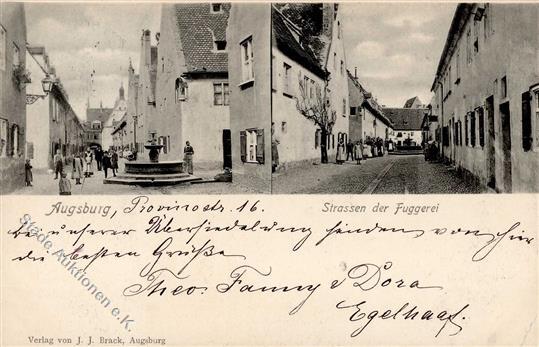 Augsburg, Provinostr. 16.
Strassen der Fuggerei
Bei unserer Übersiedelung senden von hier
die besten Grüße
Theo. Fanny & Dora
Egelhaaf.
Verlag von J. J. Brack, Augsburg
Städte Auktionen e.K.